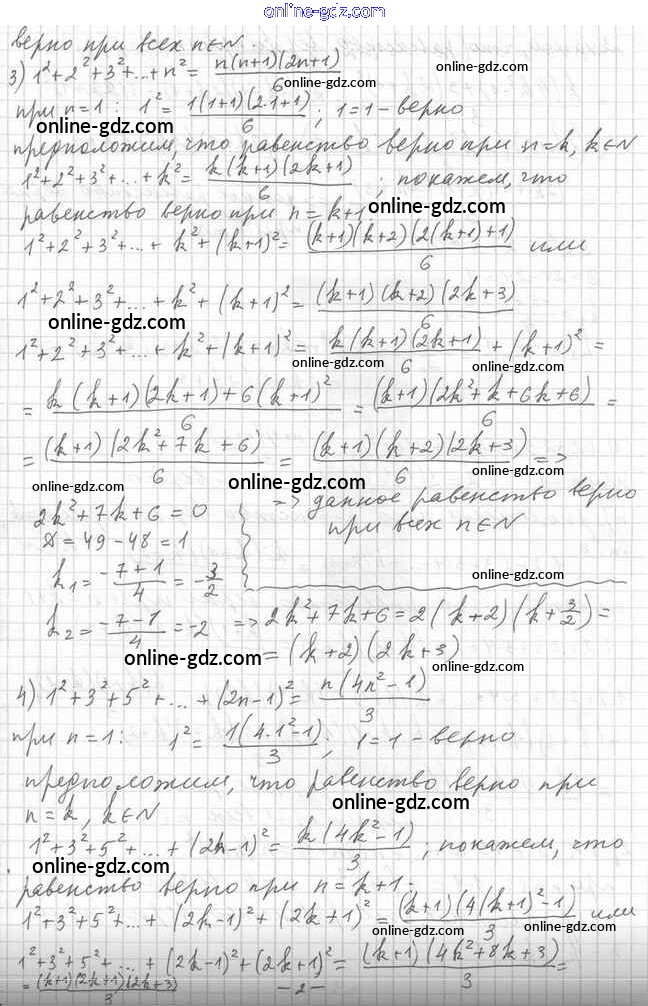 online-gdz.com
верно при всех n∈N
3) 1²+2²+3²+...+n² = n(n+1)(2n+1)/6
online-gdz.com
при n=1: 1² = 1(1+1)(2·1+1)/6; 1=1 - верно
online-gdz.com online-gdz.com
предположим, что равенство верно при n=k, k∈N
1²+2²+3²+...+k² = k(k+1)(2k+1)/6; покажем, что
равенство верно при n=k+1 online-gdz.com
1²+2²+3²+...+k²+(k+1)² = (k+1)(k+2)(2(k+1)+1)/6 или
1²+2²+3²+...+k²+(k+1)² = (k+1)(k+2)(2k+3)/6
online-gdz.com
1²+2²+3²+...+k²+(k+1)² = k(k+1)(2k+1)/6 + (k+1)² =
online-gdz.com online-gdz.com
= k(k+1)(2k+1)+6(k+1)²/6 = (k+1)(2k²+k+6k+6)/6 =
= (k+1)(2k²+7k+6)/6 = (k+1)(k+2)(2k+3)/6 =>
online-gdz.com online-gdz.com online-gdz.com
=> данное равенство верно
при всех n∈N
2k²+7k+6=0
D=49-48=1
k₁= -7+1/4 = -3/2
online-gdz.com
k₂= -7-1/4 = -2 => 2k²+7k+6=2(k+2)(k+3/2)=
online-gdz.com = (k+2)(2k+3)
online-gdz.com
4) 1²+3²+5²+...+(2n-1)² = n(4n²-1)/3
при n=1: 1² = 1(4·1²-1)/3; 1=1 - верно
online-gdz.com
предположим, что равенство верно при
n=k, k∈N online-gdz.com
online-gdz.com
1²+3²+5²+...+(2k-1)² = k(4k²-1)/3; покажем, что
online-gdz.com
равенство верно при n=k+1:
1²+3²+5²+...+(2k-1)²+(2k+1)² = (k+1)(4(k+1)²-1)/3 или
online-gdz.com
1²+3²+5²+...+(2k-1)²+(2k+1)² = (k+1)(4k²+8k+3)/3 =
= (k+1)(2k+1)(2k+3)/3
-2-